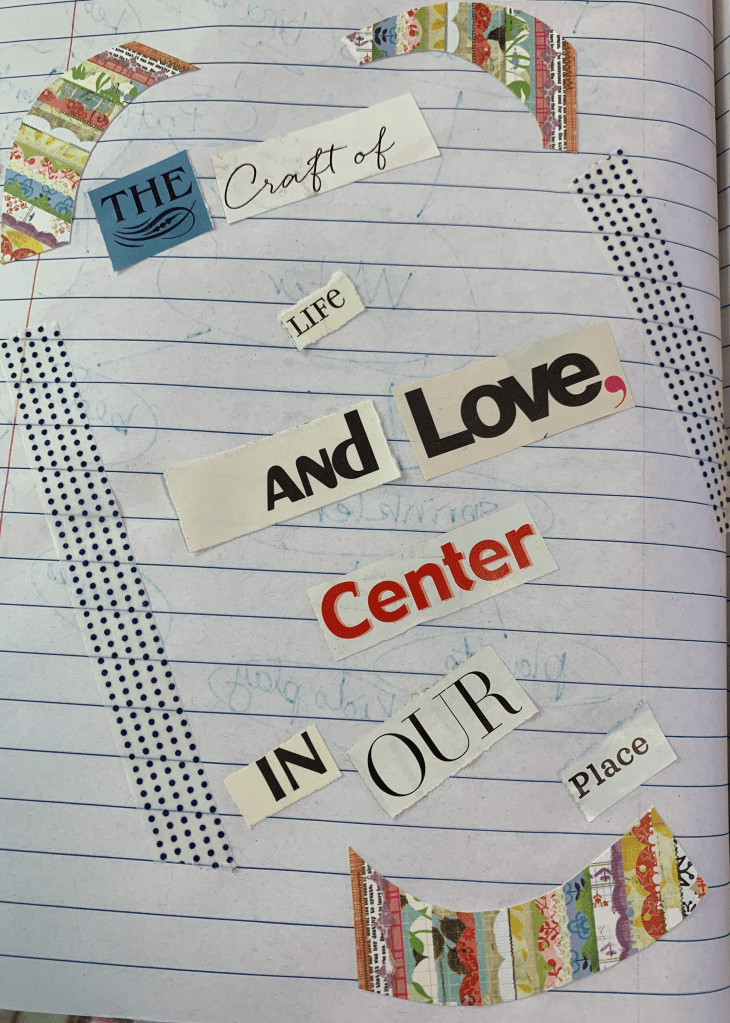 THE Craft of
LIFe
ANd Love,
Center
IN OUR
Place